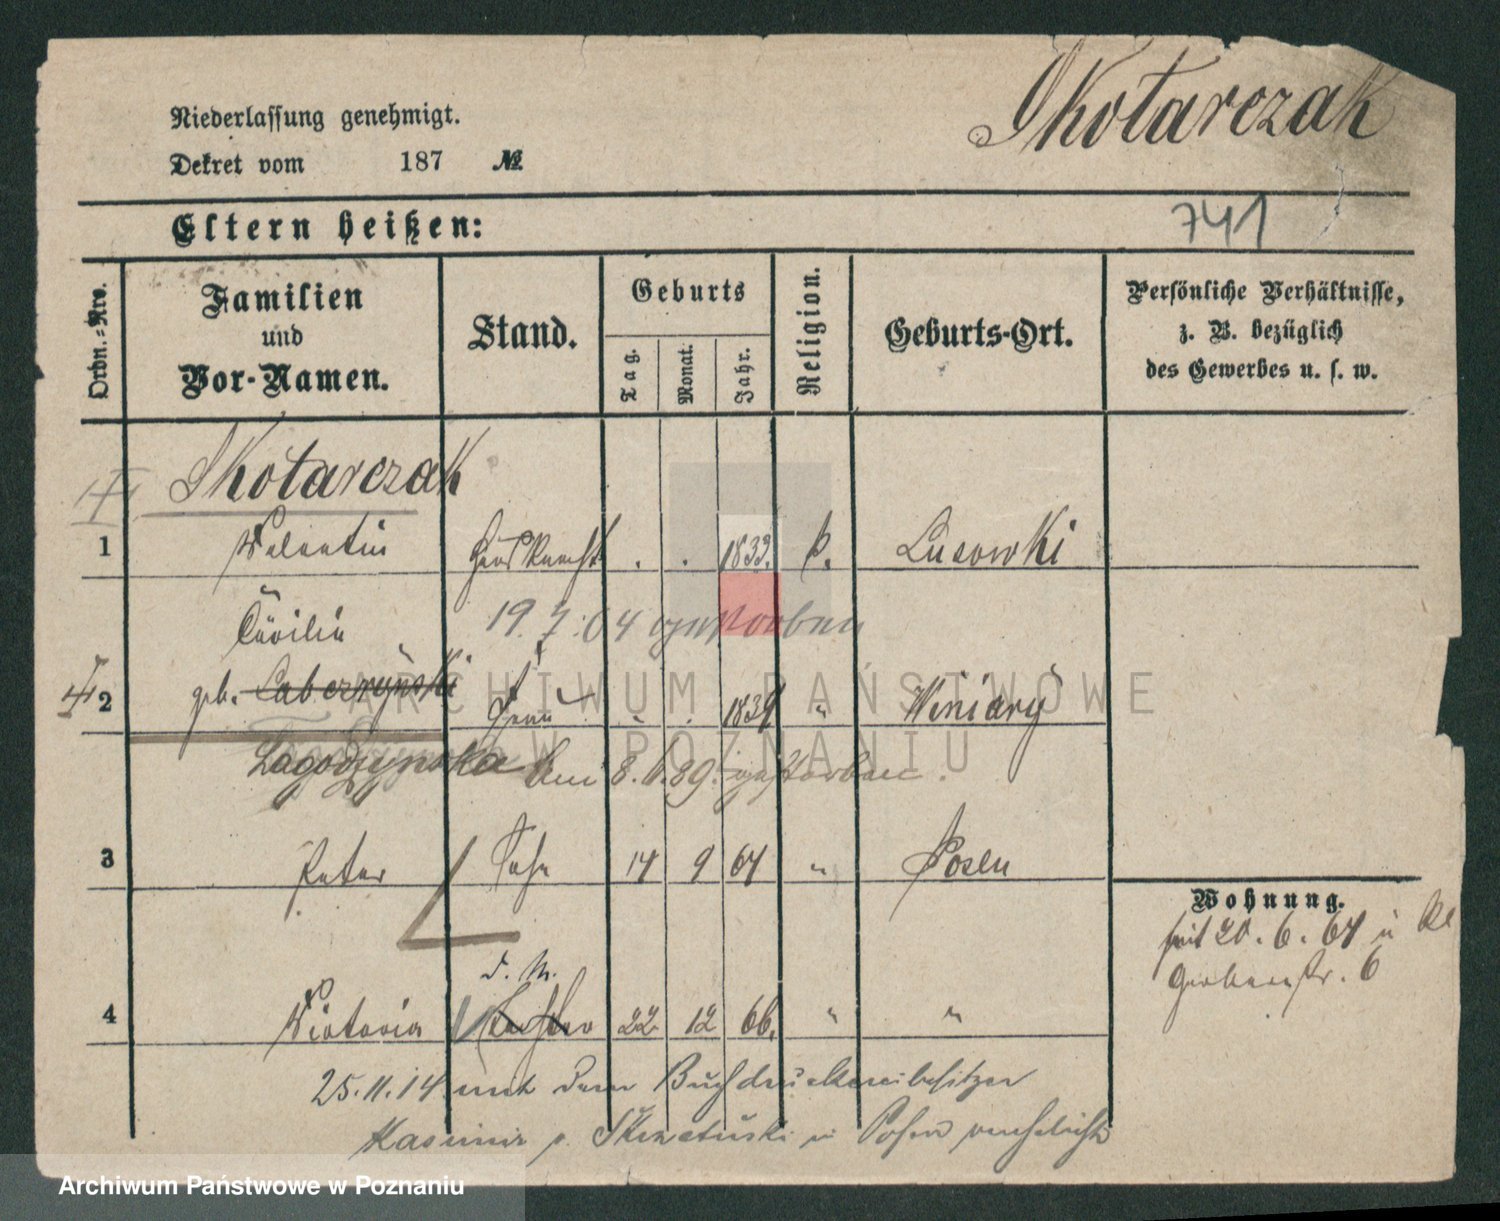 Skotarczak
Niederlassung genehmigt.
Dekret vom 187 №
741
Eltern heißen:
Ordn.-Nro.
Familien
und
Vor-Namen.
Stand.
Geburts
Tag.
Monat.
Jahr.
Religion.
Geburts-Ort.
Persönliche Verhältnisse,
z. B. bezüglich
des Gewerbes u. s. w.
Skotarczak
1 Valentin Hausknecht . . 1833. k. Lusowki
Cäcilia 19.7.04 gestorben
2 geb. Laberzynski Frau . . 1839 " Winiary
Lagodzynska Am 8.6.89. gestorben.
3 Peter Sohn 14 9 64 " Posen
Wohnung.
seit 20.6.64 Kl
Gerberstr. 6
4 Victoria Tochter 22. 12 66. " "
25.11.14 mit dem Buchdruckereibesitzer
Kasimir v. in Posen verehelicht
ARCHIWUM PAŃSTWOWE
W POZNANIU
Archiwum Państwowe w Poznaniu